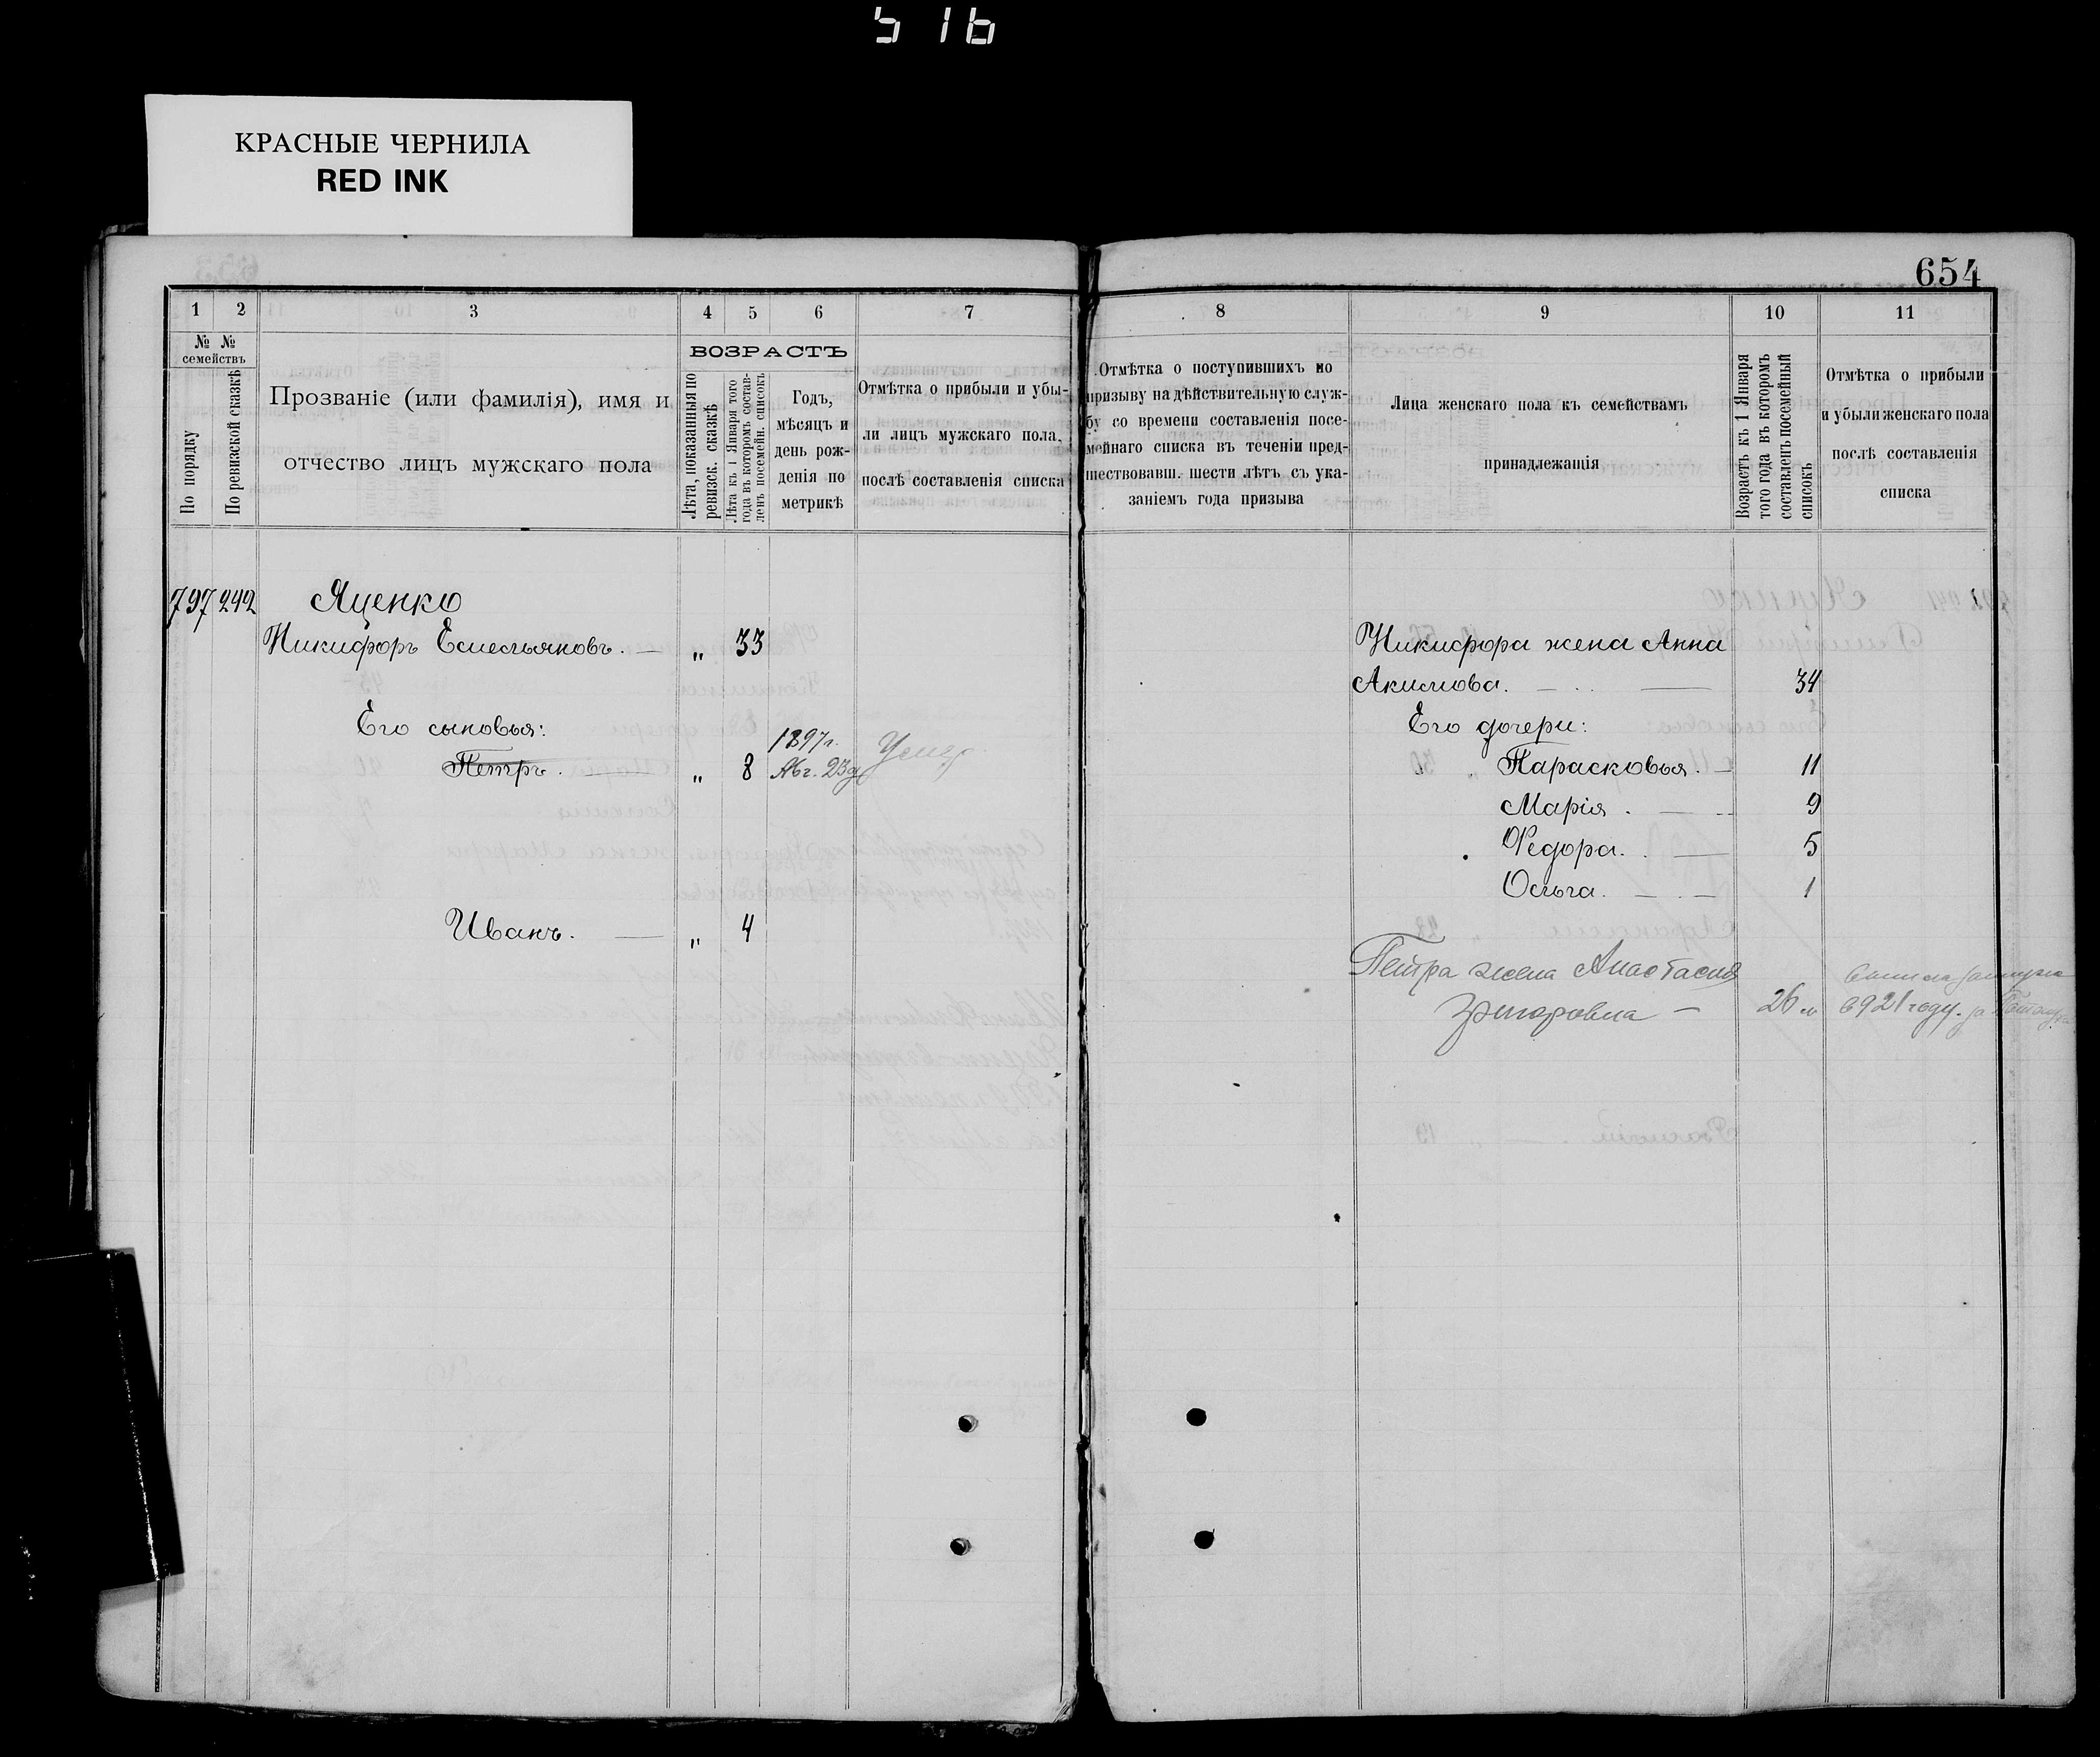 516
КРАСНЫЕ ЧЕРНИЛА
RED INK
654
1 2 3 4 5 6 7 8 9 10 11
№ №
семействъ
По порядку
По ревизской сказкѣ
Прозваніе (или фамилія), имя и
отчество лицъ мужскаго пола
ВОЗРАСТЪ
Лѣта, показанныя по
ревизск. сказкѣ
Лѣта къ 1 Января того
года въ которомъ состав-
ленъ посемейн. списокъ
Годъ,
мѣсяцъ и
день рож-
денія по
метрикѣ
Отмѣтка о прибыли и убы-
ли лицъ мужскаго пола,
послѣ составленія списка
Отмѣтка о поступившихъ по
призыву на дѣйствительную служ-
бу со времени составленія посе-
мейнаго списка въ теченіи пред-
шествовавш. шести лѣтъ съ ука-
заніемъ года призыва
Лица женскаго пола къ семействамъ
принадлежащія
Возрастъ къ 1 Января
того года въ которомъ
составленъ посемейный
списокъ
Отмѣтка о прибыли
и убыли женскаго пола
послѣ составленія
списка
797 242 Яценко
Никифоръ Емельяновъ. — „ 33
Его сыновья:
Петръ. — „ 8 1897 г.
Авг. 23 д. Умер
Иванъ. — „ 4
Никифора жена Анна
Акимова. — 34
Его дочери:
Парасковья. — 11
Марія. — 9
Федора. — 5
Ольга. — 1
Петра жена Анастасия
— 26 л
замуж
в 921 году. за